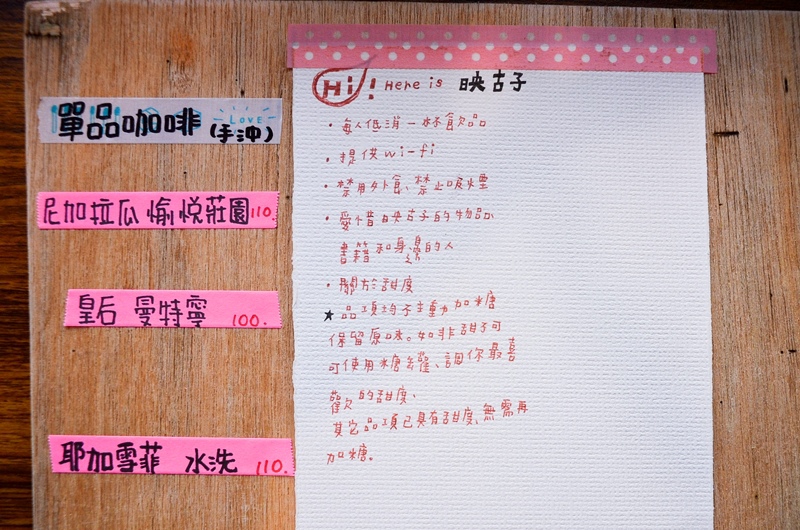 單品咖啡 LOVE
(手沖)
尼加拉瓜 愉悅莊園 110.
皇后 曼特寧 100.
耶加雪菲 水洗 110.
Hi! Here is 映古子
・每人低消一杯飲品
・提供 wi-fi
・禁用外食、禁止吸煙
・愛惜映古子的物品
書籍和身邊的人
・關於甜度
★品項均手動加糖
保留原味。如非甜子可
可使用糖罐、調你最喜
歡的甜度、
其它品項已具有甜度、無需再
加糖。